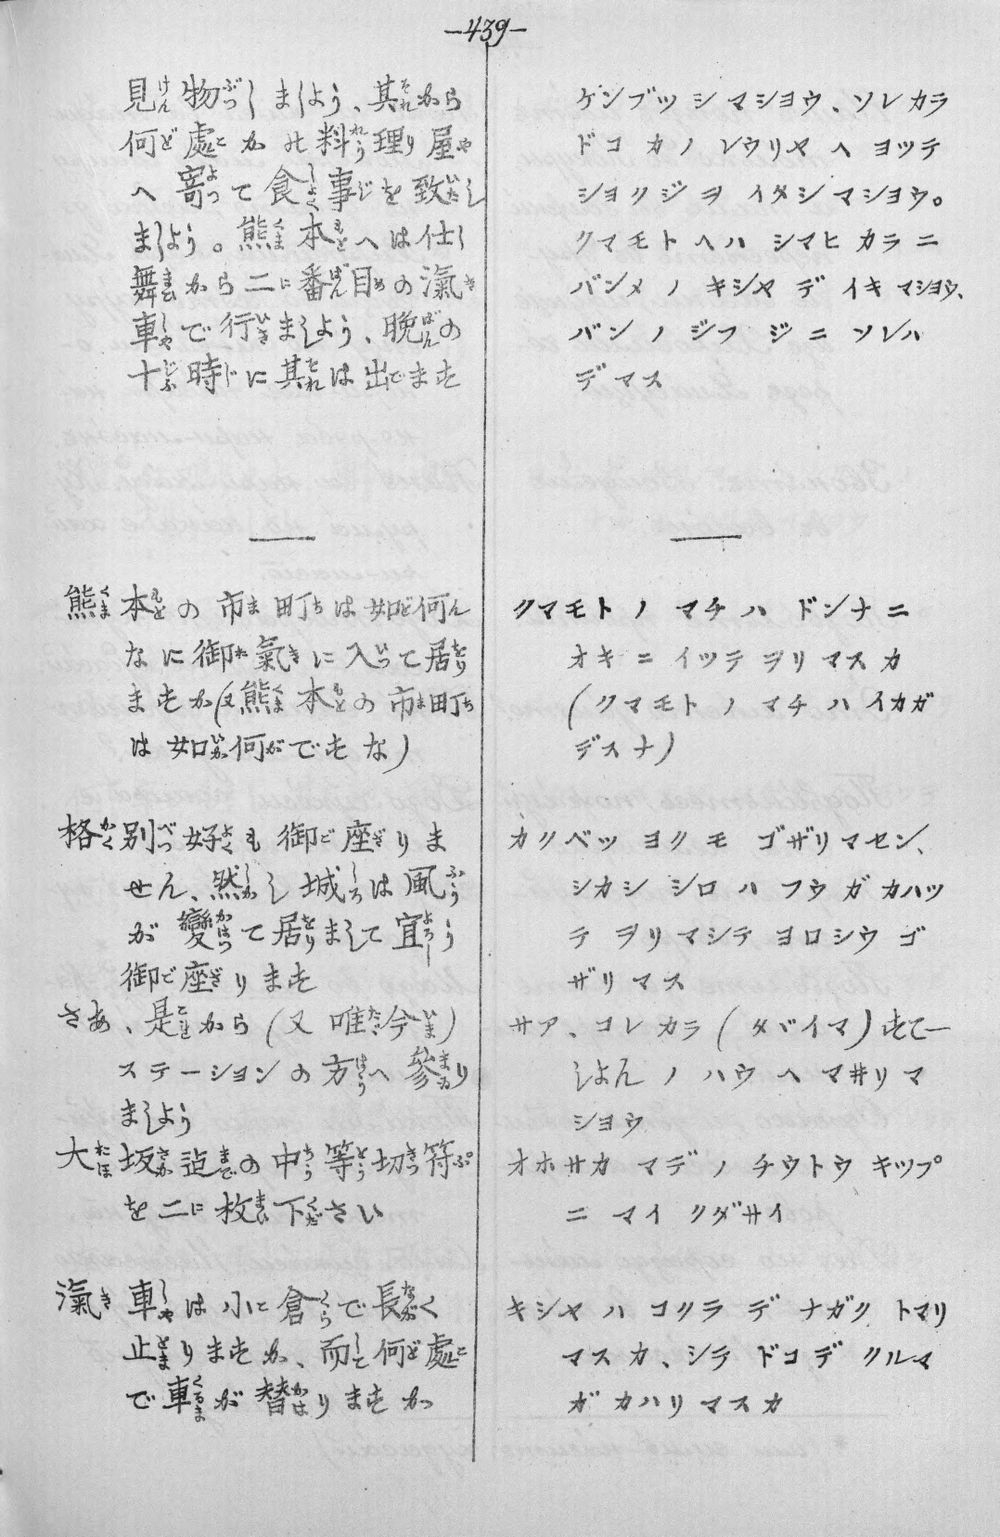 —439—
見物しましよう、其から
何處かの料理屋
へ寄つて食事を致し
ましよう。熊本へは仕
舞から二番目の滊
車で行きましよう、晩の
十時に其は出ます
熊本の市町は如何ん
なに御氣に入つて居り
ますか(又熊本の市町
は如何がですな)
格別好くも御座りま
せん、然し城は風
が變つて居りまして宜しう
御座ります
さあ、是から(又唯今)
ステーションの方へ參り
ましよう
大坂迠の中等切符
を二枚下さい
滊車は小倉で長く
止りますか、而して何處
で車が替りますか
ケンブツシマシヨウ、ソレカラ
ドコカノレウリヤヘヨツテ
シヨクジヲイタシマシヨウ。
クマモトヘハシマヒカラニ
バンメノキシヤデイキマシヨウ、
バンノジフジニソレハ
デマス
クマモトノマチハドンナニ
オキニイツテヲリマスカ
(クマモトノマチハイカガ
デスナ)
カクベツヨクモゴザリマセン、
シカシシロハフウガカハツ
テヲリマシテヨロシウゴ
ザリマス
サア、コレカラ(タダイマ)すてー
しよんノハウヘマヰリマ
シヨウ
オホサカマデノチウトウキツプ
ニマイクダサイ
キシヤハコクラデナガクトマリ
マスカ、シテドコデクルマ
ガカハリマスカ